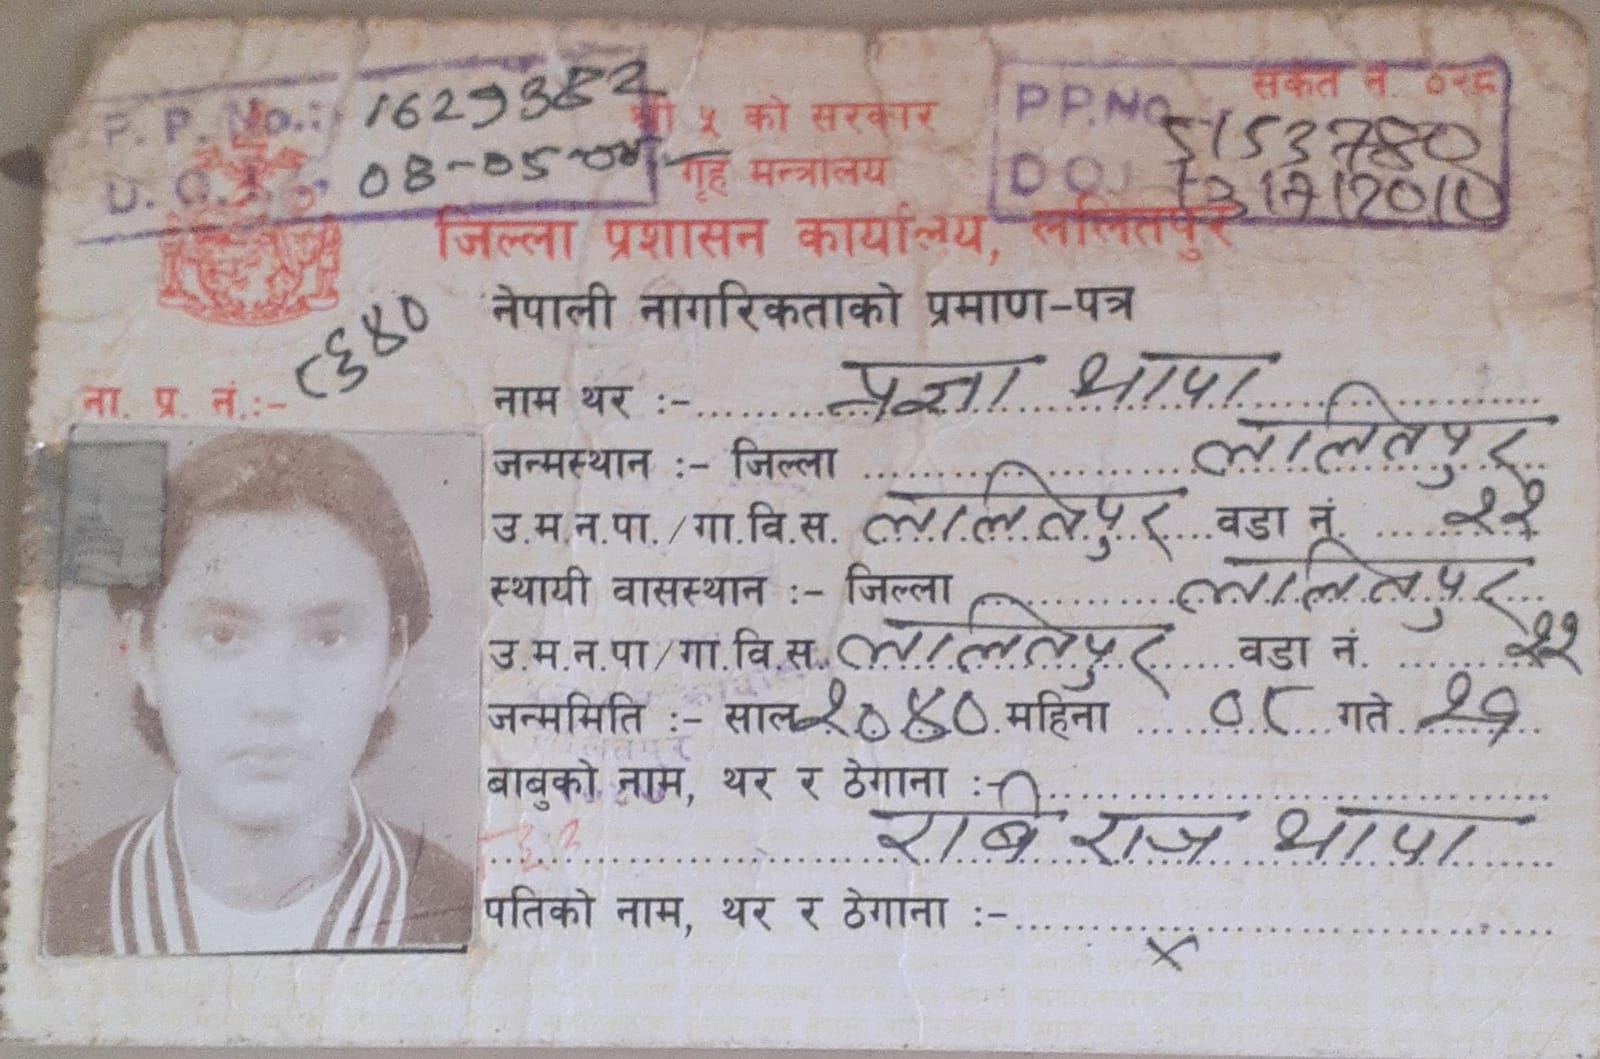 P. P. No.: 1629382
D. O. I.: 08-05-
संकेत नं. ०२८
P.P.NO. 5153780
D O I
श्री ५ को सरकार
गृह मन्त्रालय
जिल्ला प्रशासन कार्यालय, ललितपुर
नेपाली नागरिकताको प्रमाण-पत्र
ना. प्र. नं.:- ८६४०
नाम थर :- प्रज्ञा थापा
जन्मस्थान :- जिल्ला ललितपुर
उ.म.न.पा./गा.वि.स. ललितपुर वडा नं. २२
स्थायी वासस्थान :- जिल्ला ललितपुर
उ.म.न.पा/गा.वि.स. ललितपुर वडा नं. २२
जन्ममिति :- साल २०४० महिना ०८ गते २१
बाबुको नाम, थर र ठेगाना :-
रवि राज थापा
पतिको नाम, थर र ठेगाना :-
x